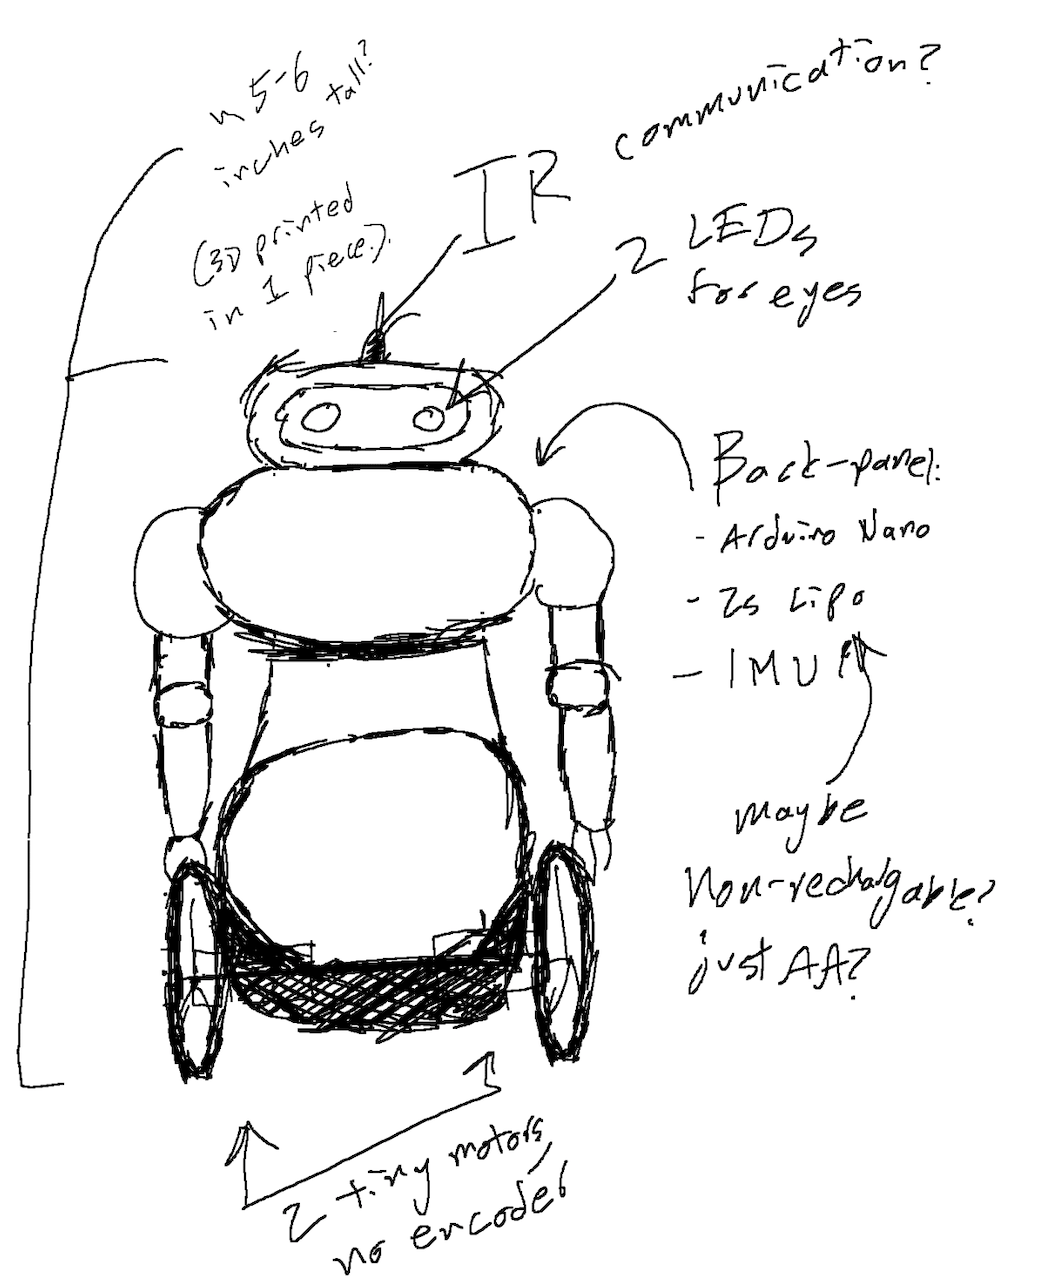 ~ 5-6
inches tall?
(3D printed
in 1 piece?)
IR communication?
2 LEDs
for eyes
Back-panel:
- Arduino Nano
- 2s Lipo
- IMU
maybe
non-rechargable?
just AA?
2 tiny motors,
no encoder